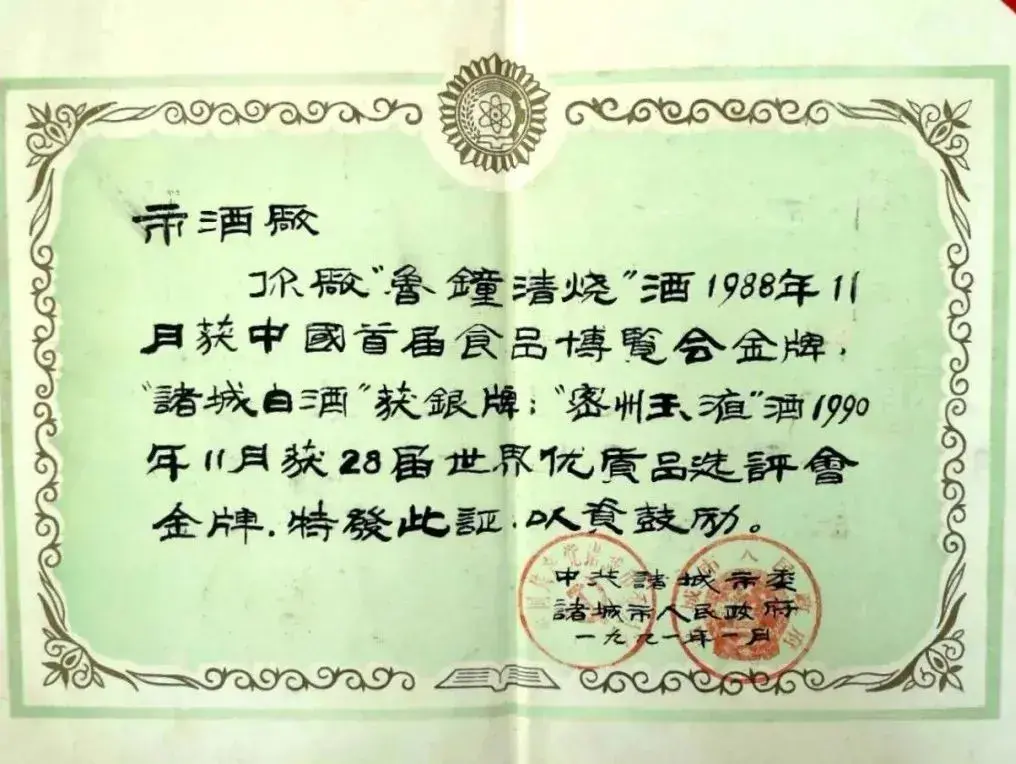 市酒廠
你廠“魯鐘清烧”酒1988年11
月获中國首届食品博覧会金牌，
“諸城白酒”获銀牌；“密州玉液”酒1990
年11月获28届世界优质品选評會
金牌.特發此証.以資鼓励。
中共諸城市委
諸城市人民政府
一九九一年一月